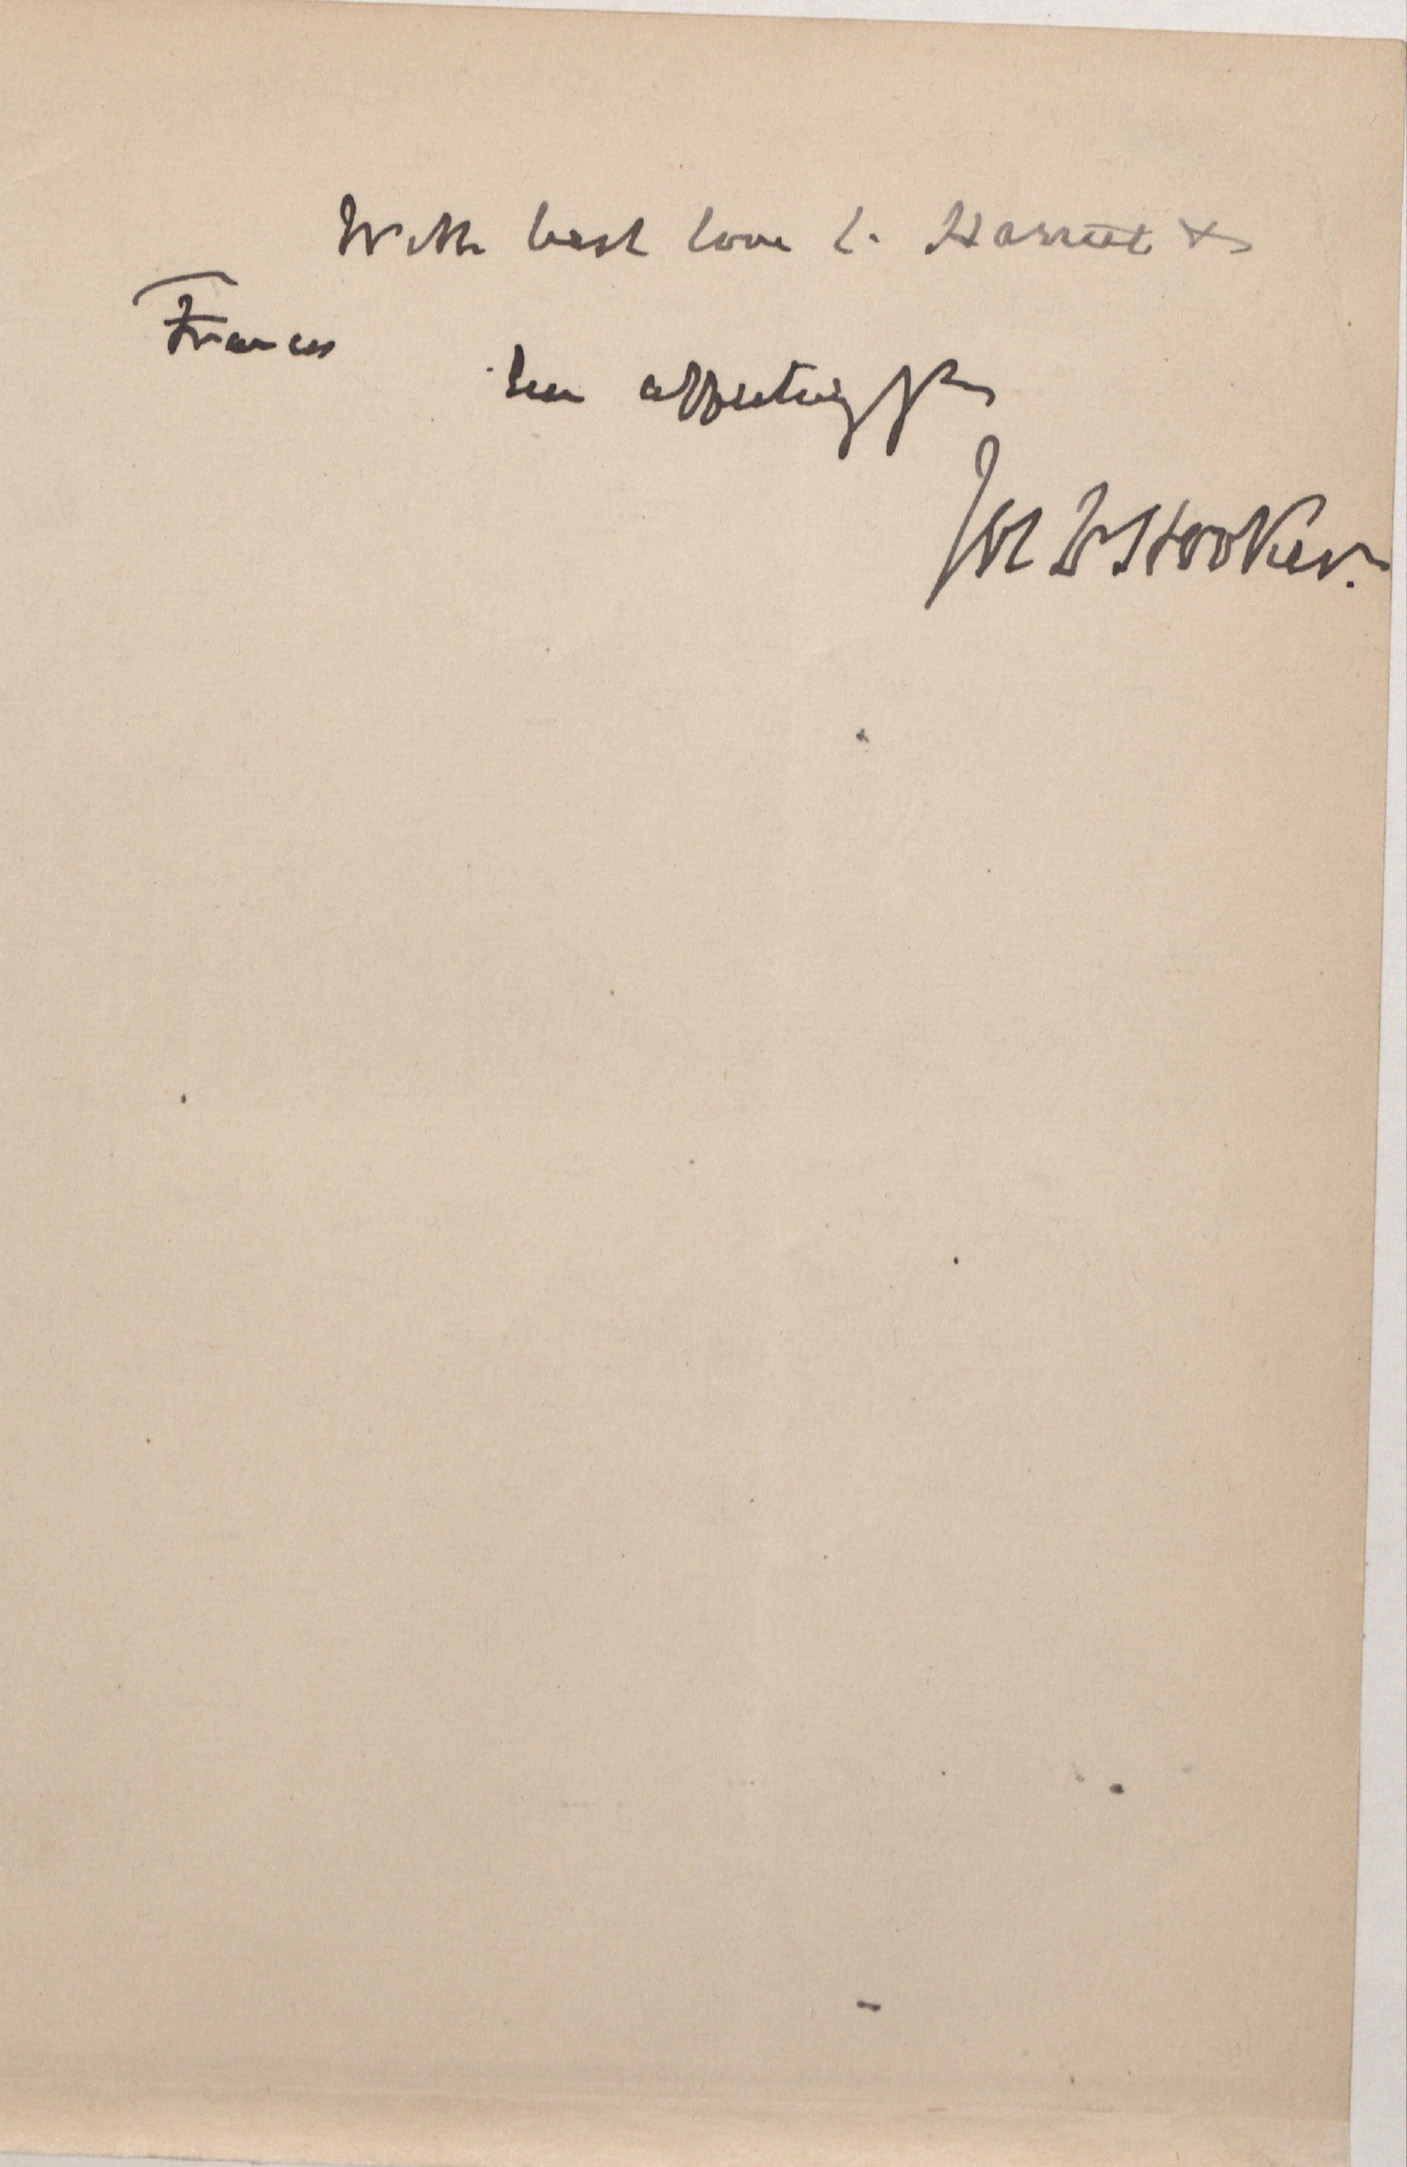 With best love to Harriet &
Frances
Ever affectnly yrs
Jos D Hooker.